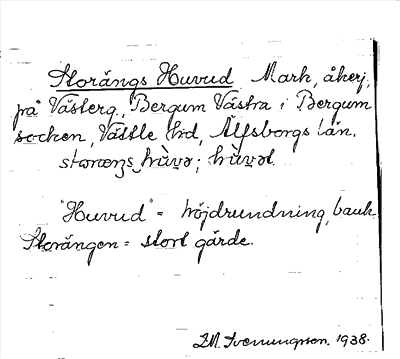 Storängs Huvud Mark, åkerj.
på Västerg., Bergum Västra i Bergum
socken, Vättle hd, Älfsborgs län.
"Huvud" = höjdrundning, 
Storängen = stort gärde.
Svenungsson. 1938.